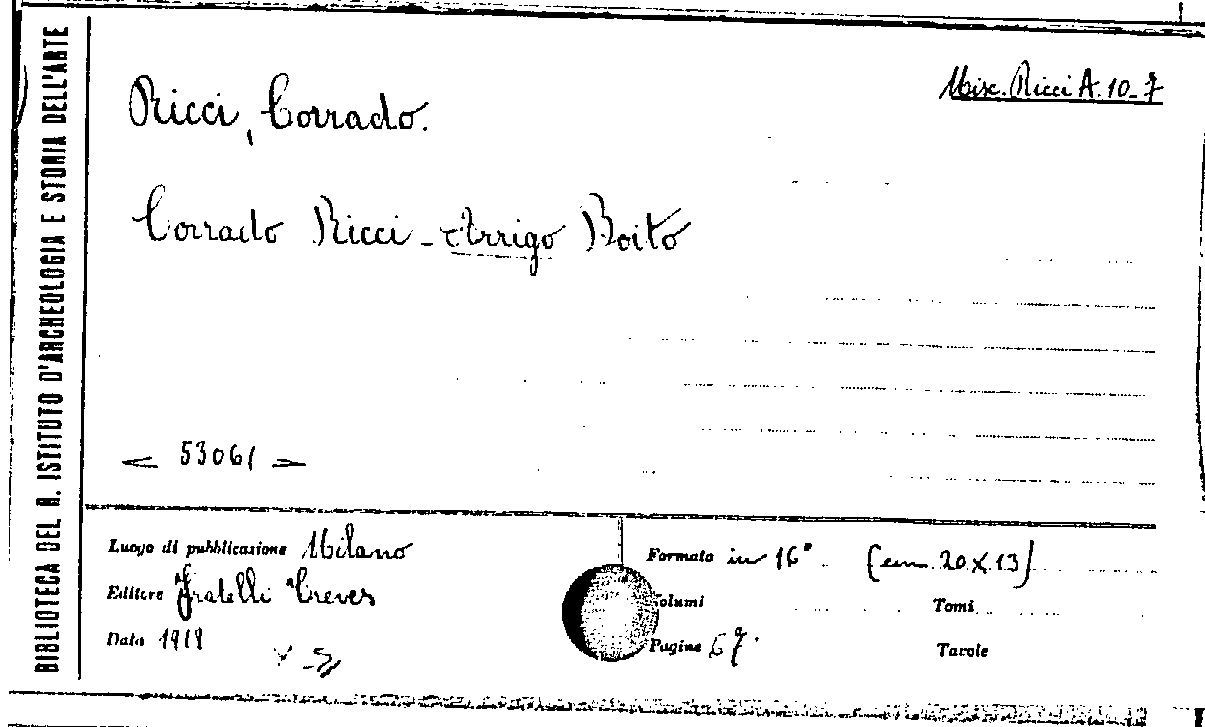 BIBLIOTECA DEL R. ISTITUTO D'ARCHEOLOGIA E STORIA DELL'ARTE
Misc. Ricci A. 10-7
Ricci, Corrado.
Corrado Ricci - Arrigo Boito
53061
Luogo di pubblicazione Milano
Editore Fratelli Treves
Data 1919
Formato in 16° (cm. 20 X 13)
Volumi
Tomi
Pagine 67.
Tavole